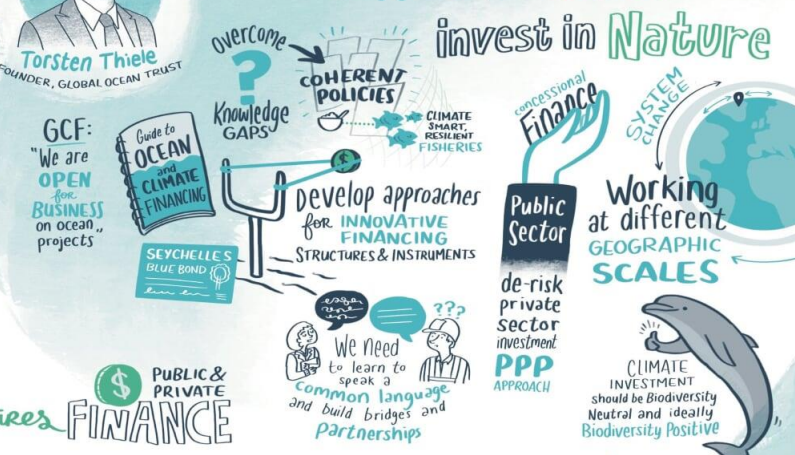 Torsten Thiele
FOUNDER, GLOBAL OCEAN TRUST
GCF:
"We are
OPEN
for
BUSINESS
on ocean
projects"
Guide to
OCEAN
and
CLIMATE
FINANCING
SEYCHELLES
BLUE BOND
overcome
?
Knowledge
GAPS
COHERENT
POLICIES
CLIMATE
SMART,
RESILIENT
FISHERIES
$
Develop approaches
for INNOVATIVE
FINANCING
STRUCTURES & INSTRUMENTS
???
We need
to learn to
speak a
common language
and build bridges and
Partnerships
$
PUBLIC &
PRIVATE
FINANCE
invest in Nature
concessional
Finance
Public
Sector
de-risk
private
sector
investment
PPP
APPROACH
SYSTEM
CHANGE
Working
at different
GEOGRAPHIC
SCALES
CLIMATE
INVESTMENT
should be Biodiversity
Neutral and ideally
Biodiversity Positive